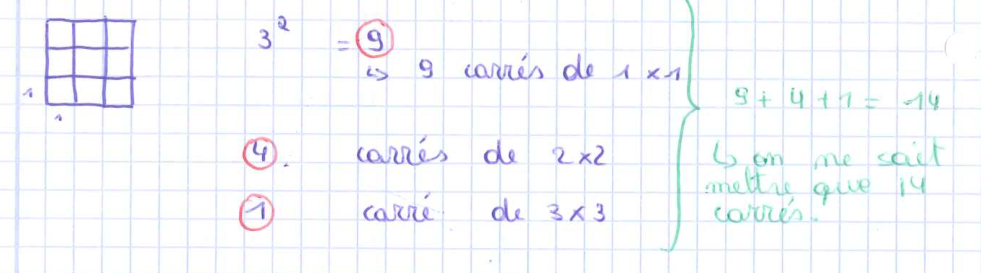 3² = 9
↳ 9 carrés de 1 x 1
1
1
4. carrés de 2x2
1 carré de 3x3
9 + 4 + 1 = 14
↳ on ne sait
mettre que 14
carrés.